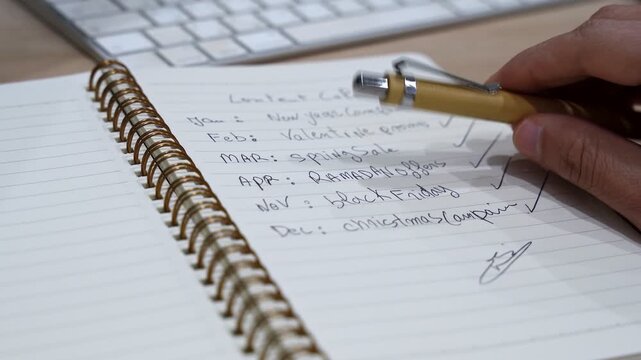 Content
Jan: New years
Feb: Valentine
MAR: spring Sale
APR: RAMADAN offers
Nov: black Friday
Dec: christmas Campain